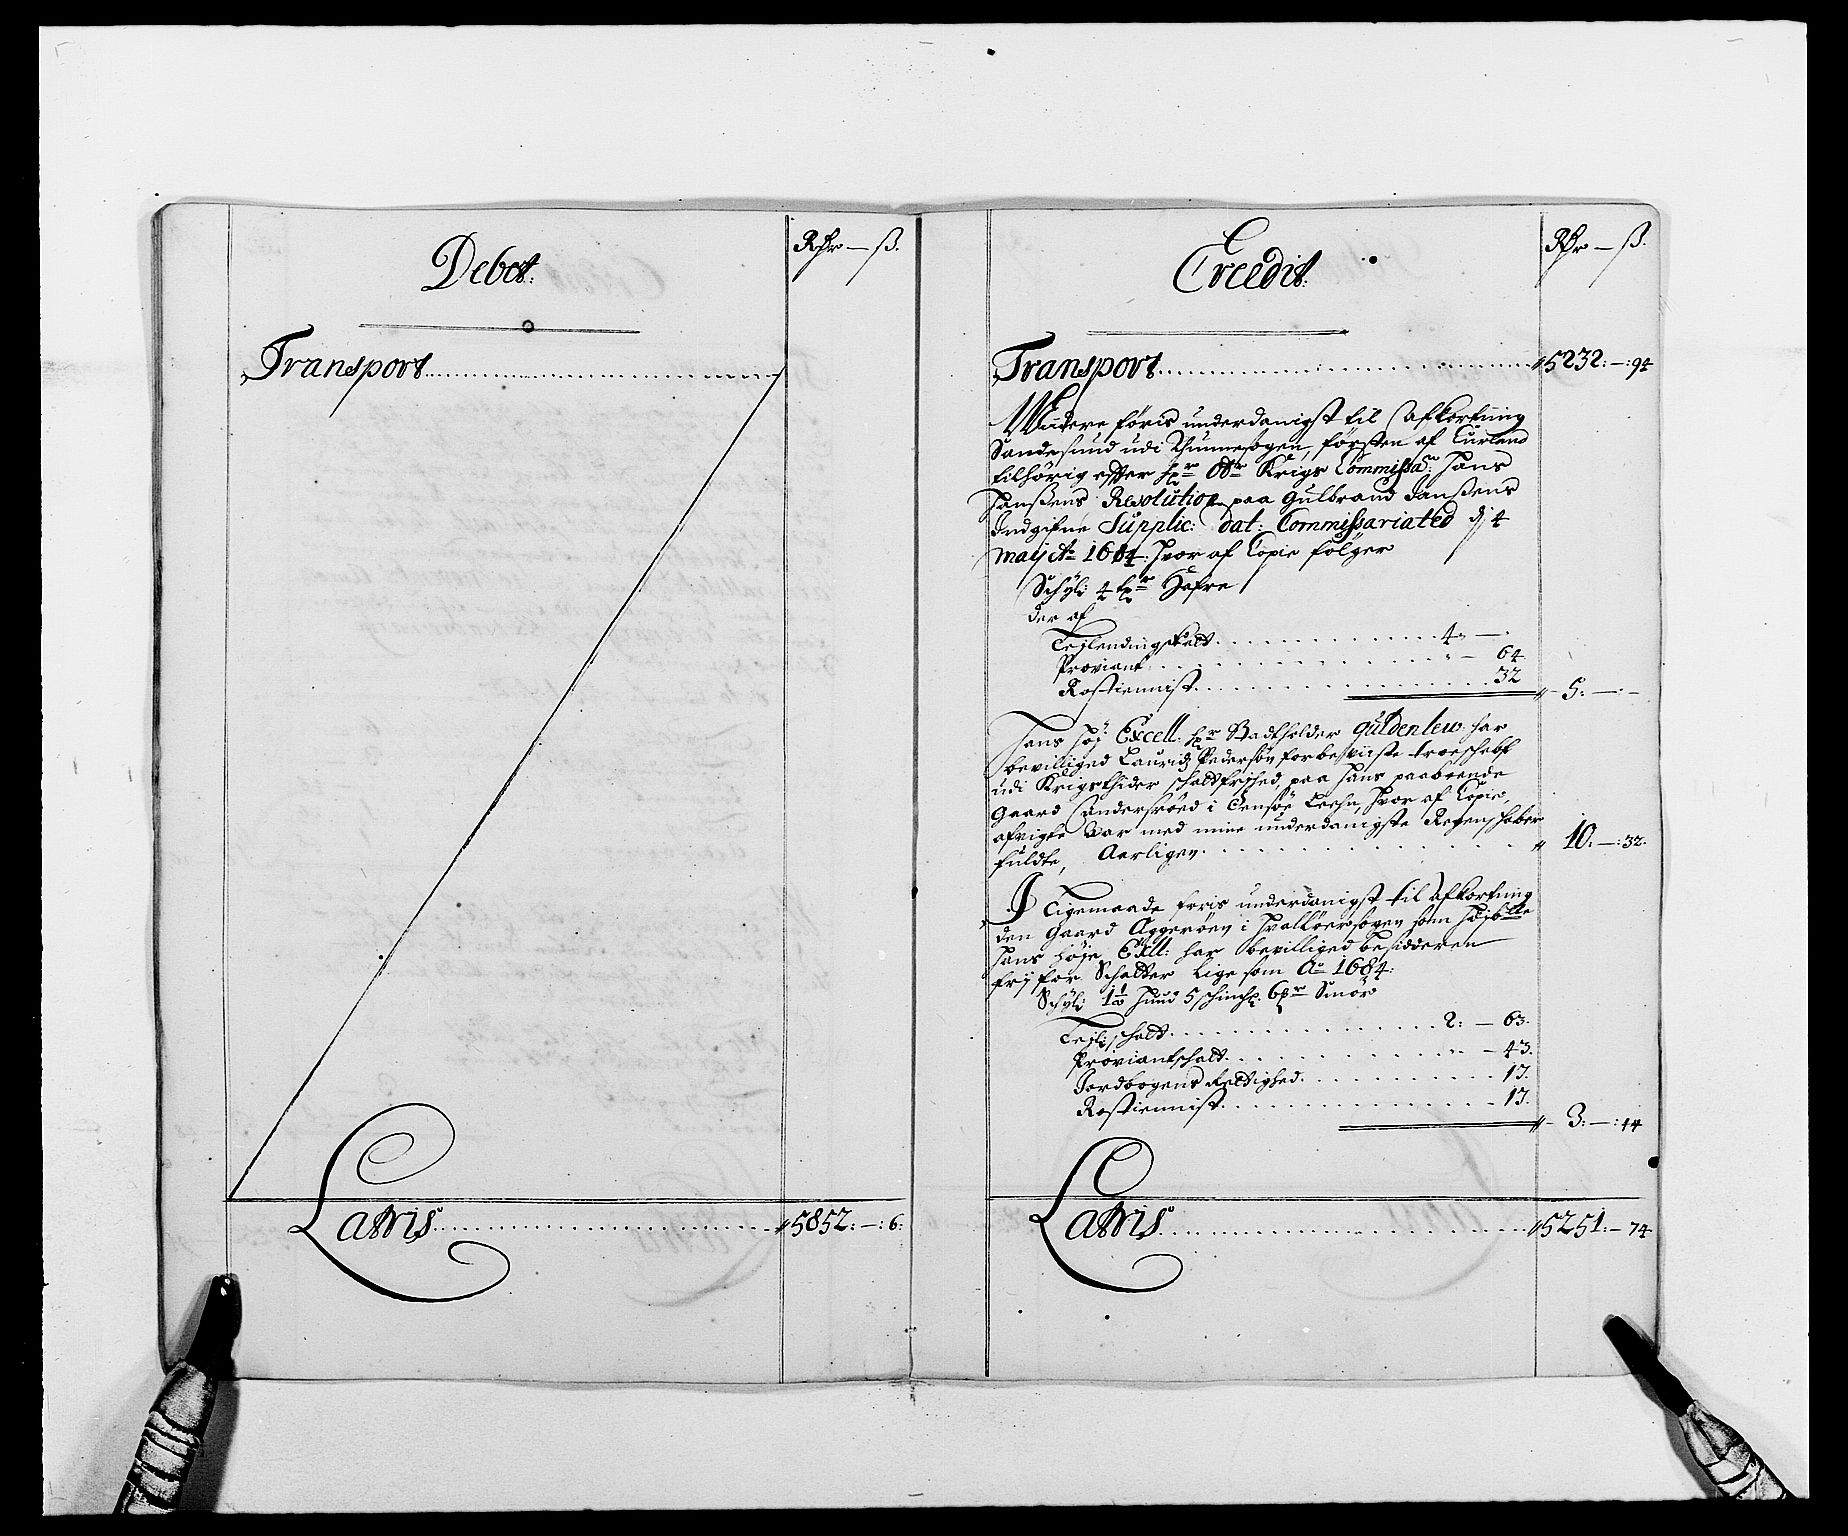 Debet:
Rdr — ß.
Transport
Latris 5852: — : 6:
Creedit:
Rdr — ß.
Transport 5232: — : 94
Widere føris underdanigst til afkortning
Sandesund udi Thunnesogen, førsten af Curland
tilhørig efter hr: Obr: Krigs Commissa: Hans
Hanßens Resolution paa Gulbrand Hanßens
Indgifne Supplic: dat: Commissariated dj 4
Maij Ao 1684: hvor af Copie følger
Schyld 4 Hafre
der af
Leylendingskatt 4: —
Proviant " — 64
Rostiennist 32
5: — : —
Hans høj Excell: hr Stadtholder Guldenlew har
bevilliged Lauridz Pedersøn for beviiste troeschab
udi Krigsthider schattfrjhed paa hans paaboende
Gaard Andersröed i Tensøe Leehn, hvor af Copie,
afvigte Aar med mine underdanigste Regenschaber
fuldte, Aarligen 10: — : 32.
I Ligemaade føris underdanigst til Afkortning
den Gaard Aggerøen i Hvalløersogen som høj
hans høje Exll: har bevilliged besidderen
frj for Schatter Lige som Ao 1684:
Schyld 1½ huud 5 schind 6 Smør
Leylschatt 2: — 63.
Proviantschatt — 43.
Jordbogens Rettighed 17.
Rostiennist 17.
3: — : 44
Latris 5251: — 74